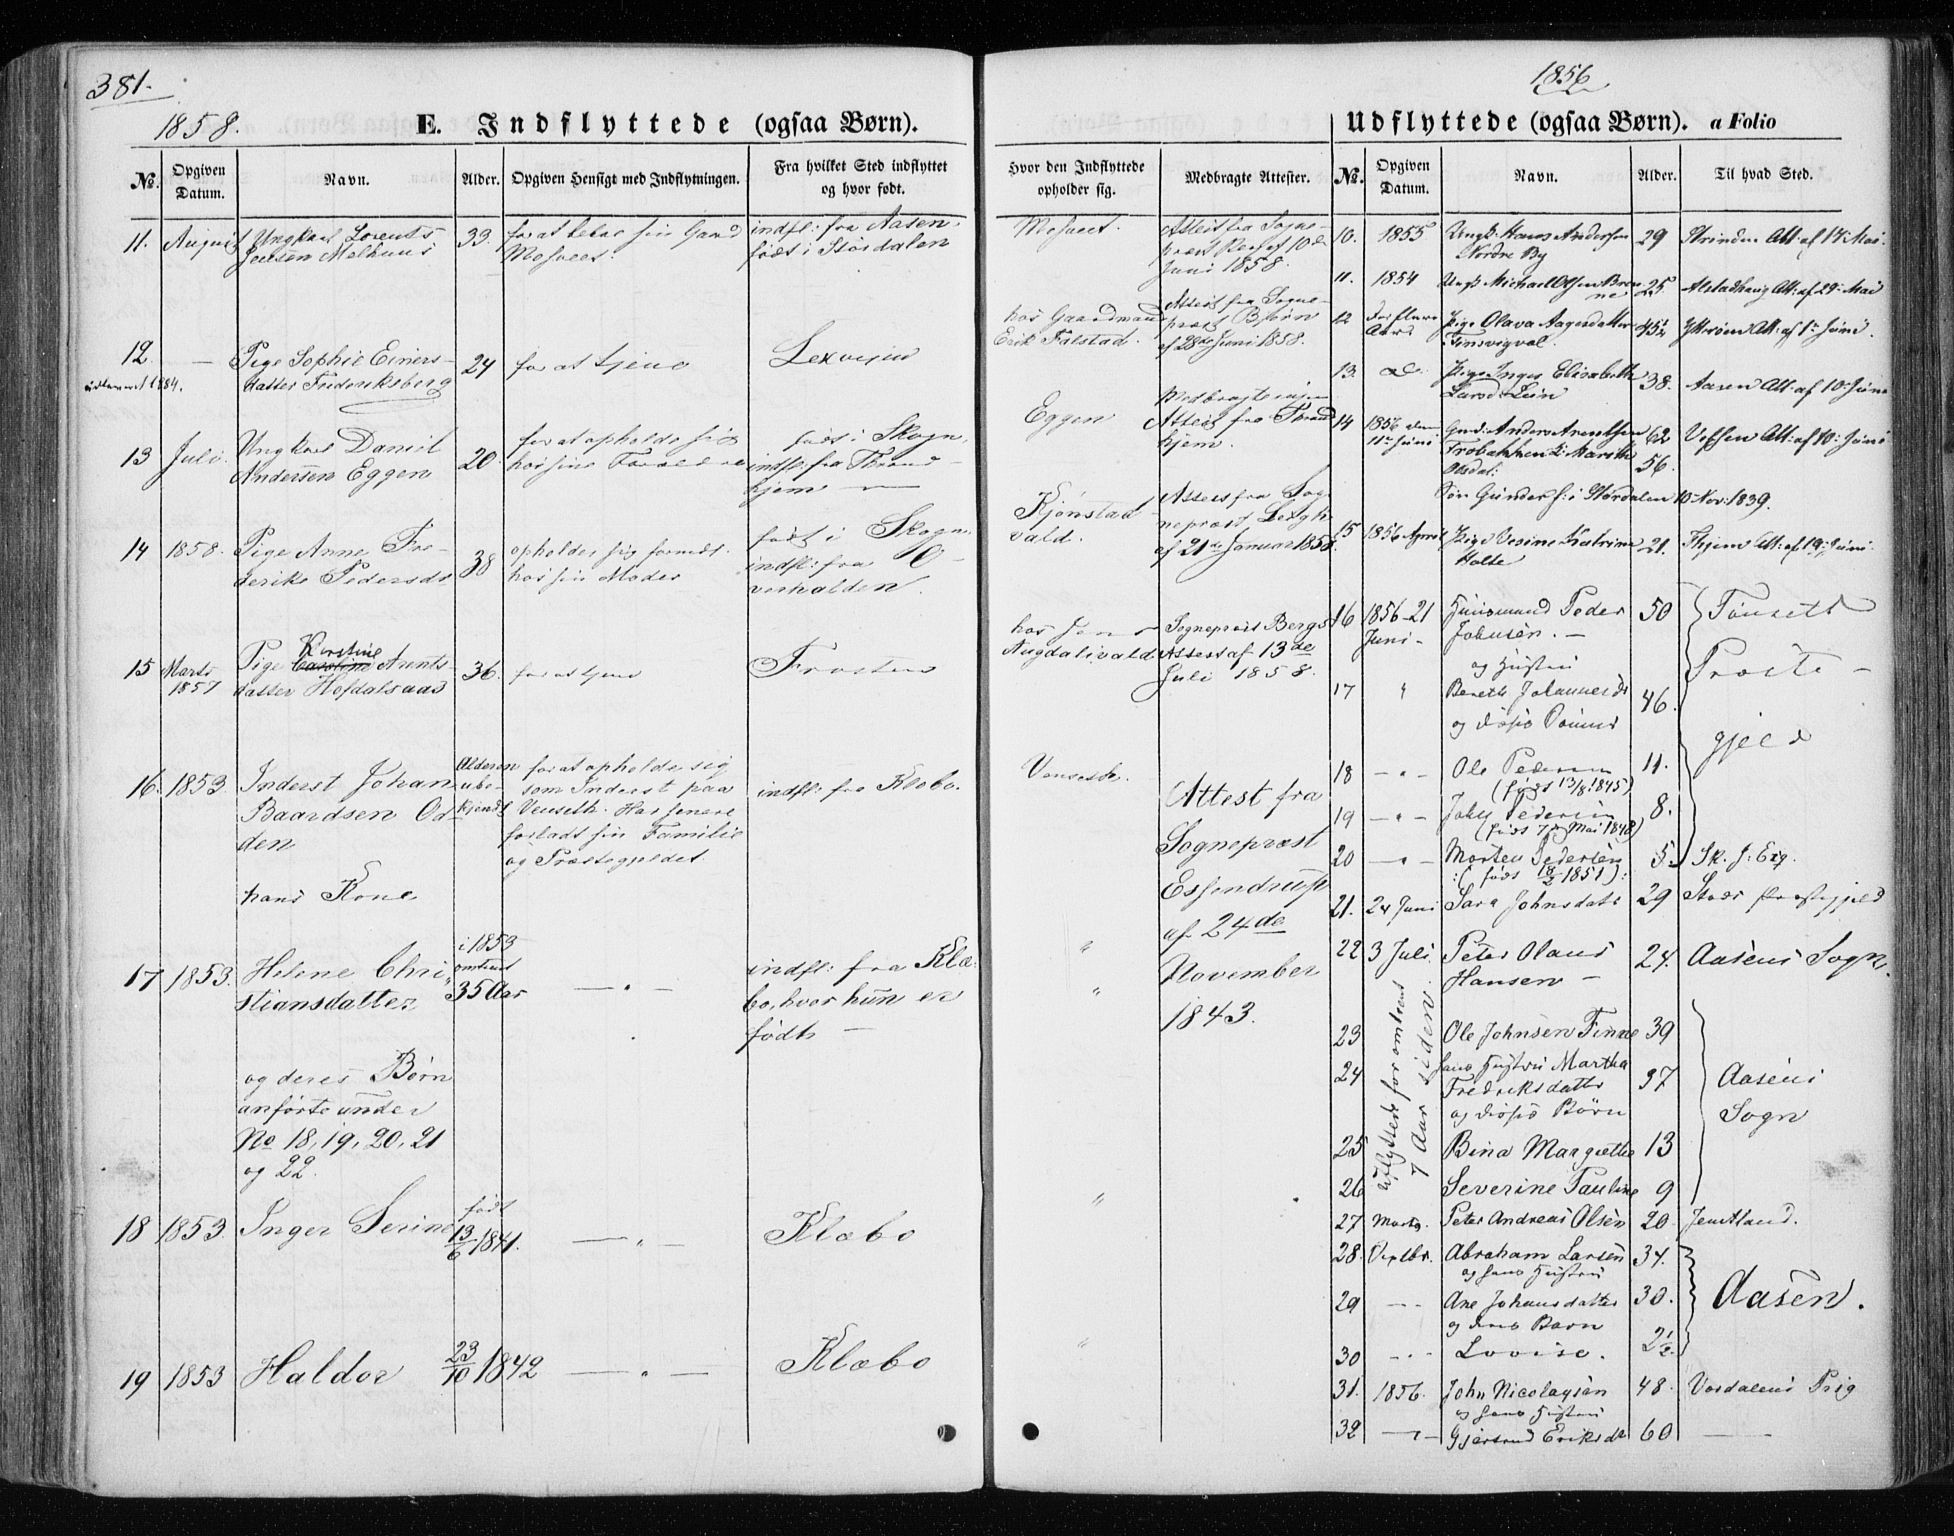 381.
1858.
E. Indflyttede (ogsaa Børn).
No.
Opgiven Datum.
Navn.
Alder.
Opgiven Hensigt med Indflytningen.
Fra hvilket Sted indflyttet og hvor født.
11. August Ungkarl Lorents 33. for at leboe sin Gaard indfl: fra Aasen,
Jensen Melhuus født i Størdalen
12. — Pige Sophie Einers- 24 for at tjene Lexvigen
1884. datter Frederiksberg
13 Juli. Ungkarl Daniel 20. for at opholde sig født i Skogn,
Andersen Eggen hos sine Forældre indfl: fra Thrond-
hjem —
14 1858. Pige Anne Fre- 38 opholder sig født i Skogn,
derike Pedersd. hos sin Moder indfl: fra O-
verhalden.
Kirstine
15 Marts 1857 Pige Arnts- 36. for at tjene Frosten
datter Hofdalsaas
16. 1853. Inderst Johan Alderen ube- kjendt for at opholde sig indfl: fra Klæbo.
Baardsen Od- som Inderst paa
den Venseth. Har senere
forladt sin Familie
og Præstegjeldet.
hans Kone
17 1853. Helene Chri- i 1853 omtrent 35 Aar — " — indfl: fra Klæ-
stiansdatter, bo, hvor hun er
født —
og deres Børn
anførte under
No 18, 19, 20, 21
og 22.
18 1853. Inger Serine født 13/6 1841. — " — Klæbo
19 1853 Haldor 23/10 1842 — " — Klæbo
1856
Udflyttede (ogsaa Børn). a Folio
Hvor den Indflyttede opholder sig.
Medbragte Attester.
No.
Opgiven Datum.
Navn.
Alder.
Til hvad Sted.
Attest fra Sogne-
præst 10de
Juni 1858.
hos Gaardmand Attest fra Sogne-
Erik Falstad. præst Bjørn
af 28de Juni 1858.
Eggen Medbragte ingen
Attest fra Thrond-
hjem.
Kjønstad- Attest fra Sog-
vald. nepræst
af 21de Januar 1858.
hos Jens Sognepræst Bergs
Augdalsvald Attest af 13de
Juli 1858.
Venseth. Attest fra
Sognepræst
Essendrup
af 24de
November
1843.
10. 1855 Ungk. Hans Andersen 29 Strinden Att: af 14. Mai.
Nordre By
11. 1854 Ungk Michael Olsen 25. Alstadhaug Att: af 29. Mai
12 for flere Aar Pige Olava Aagesdatter 45½ Ytterøen Att: af 1. Juni.
Finsvigval.
13. Do: Pige Inger Elisabeth 38. Aasen Att: af 10. Juni
Larsd. Lein
14 1856 den 11te Juni Gmd: Anders Arentsen 62 Vefsen Att: af 10. Juni
Marith 56.
Olsdat:
Søn Gunder f: i Størdalen 10 Nov: 1839.
15 1856 April Pige Katrina 21. Thjem Att: af 19. Juni
Holte
16 1856 21 Juni - Huusmand Peder 50 Tønsett
Johnsen. — Præste-
og Hustru gjeld
17 " Bereth Johannesd. 46.
og disses Børn
18 — " — Ole Pedersen 11.
(født 13/8 1845)
19 — " — John Pedersen 8.
(født 7de Mai 1848)
20 — " — Morten Pedersen 5. Sk. f: Erg.
:( født 18/2 1851 ):
21. 24 Juni Sara Johnsdatt 29 Præstegjeld
22 3 Juli Peter Olaus 24. Aasens Sogn.
Hansen —
Udflyttede for omtrent
7 Aar siden.
23 Ole Johnsen Finne 39
24 hans Hustru Martha 37 Aasens
Fredriksdatter Sogn
og disses Børn
25 Bina Margrethe 13
26 Severine Pauline 9
27 Marts. Peter Andreas Olsen 20. Jemtland.
28. Septbr. Abraham Larsen 34.
og hans Hustru
29 — Ane Johansdatter 30. Aasen.
og deres Barn
30 — Lovise. 2½
31. 1856. John Nicolaysen 48. Værdalens Prg
og hans Hustru
32 — " — Gjertrud Eriksdt 60 —